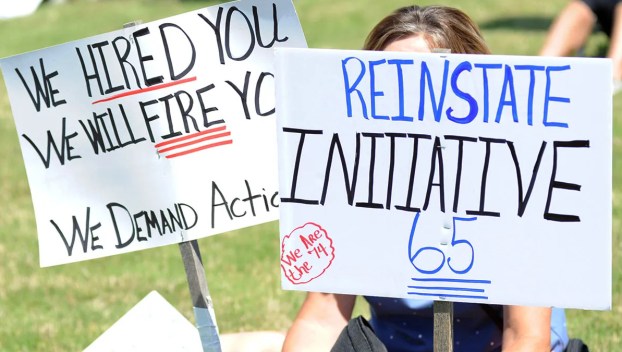 WE HIRED YOU
WE WILL FIRE
WE DEMAND
REINSTATE
INITIATIVE
65
We Are
the 74